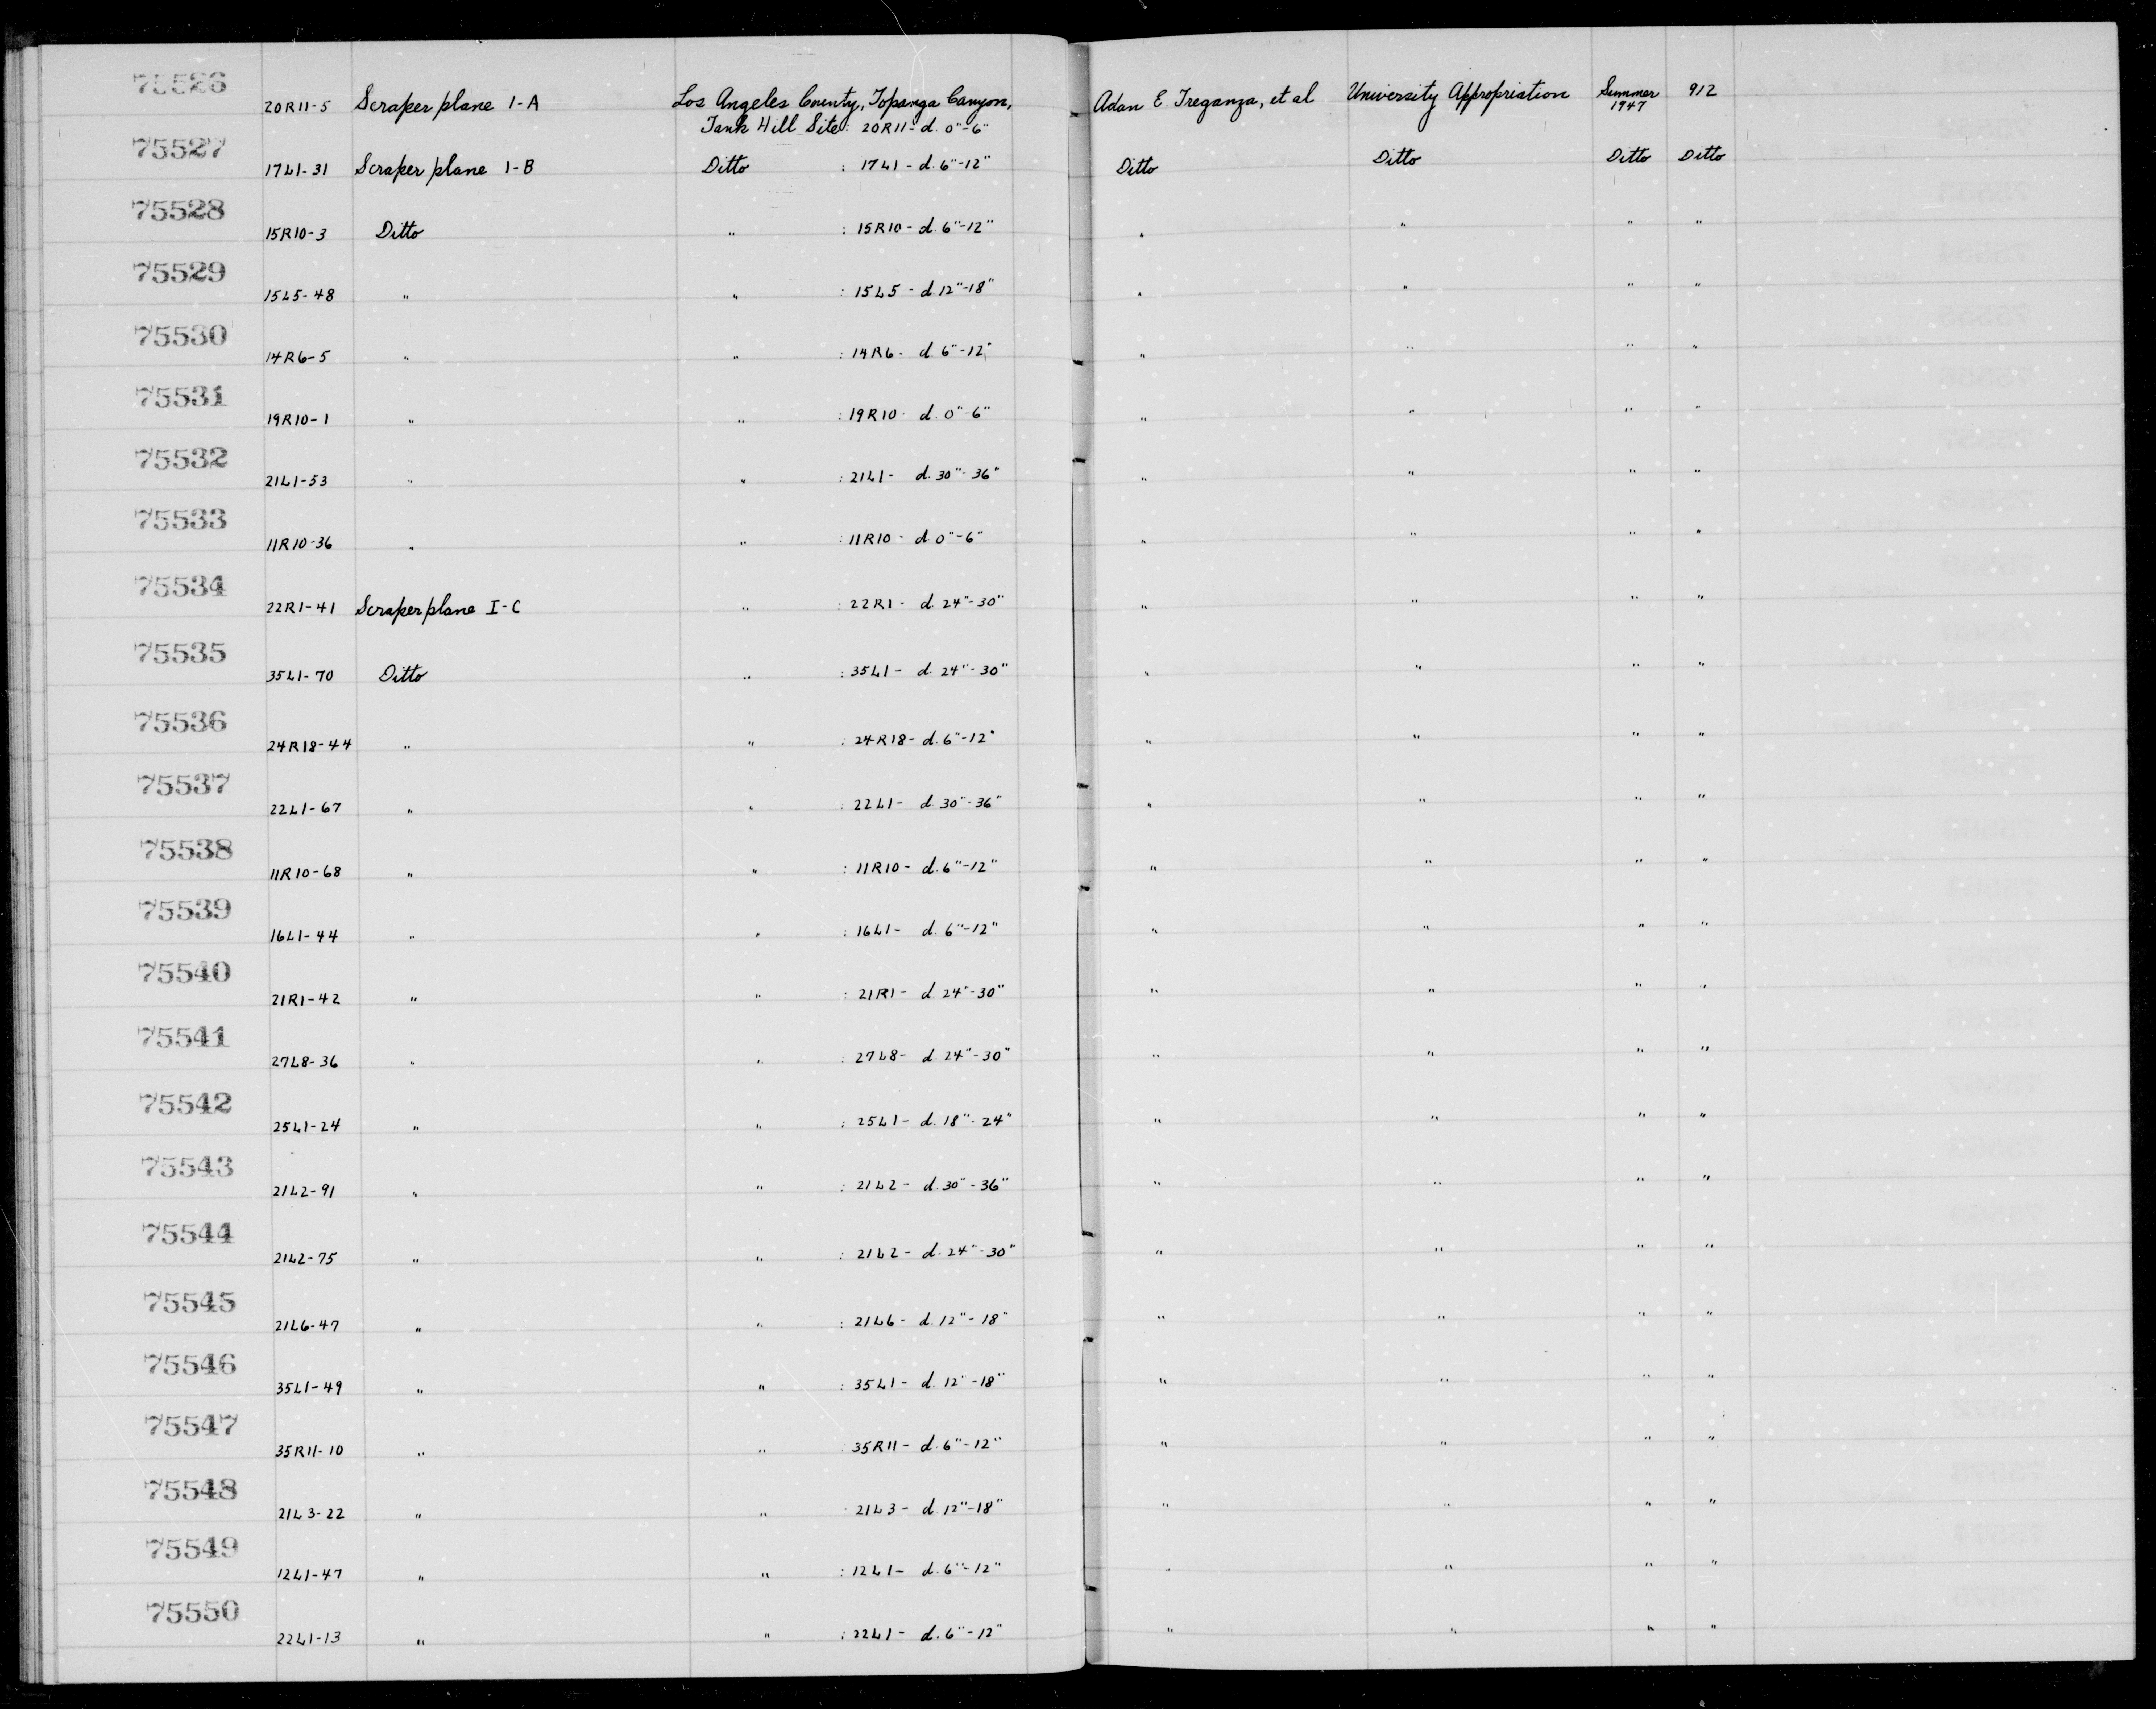 75526 20R11-5 Scraper plane 1-A Los Angeles County, Topanga Canyon, Adan E Treganza, et al University Appropriation Summer 1947 912
Tank Hill Site: 20R11- d. 0"-6"
75527 17L1-31 Scraper plane 1-B Ditto : 17L1 - d. 6"-12" Ditto Ditto Ditto Ditto
75528 15R10-3 Ditto " : 15R10 - d. 6"-12" " " " "
75529 15L5-48 " " : 15L5 - d. 12"-18" " " " "
75530 14R6-5 " " : 14R6 - d. 6"-12" " " " "
75531 19R10-1 " " : 19R10 - d. 0"-6" " " " "
75532 21L1-53 " " : 21L1- d. 30"-36" " " " "
75533 11R10-36 " " : 11R10 - d. 0"-6" " " " "
75534 22R1-41 Scraper plane I-C " : 22R1 - d. 24"-30" " " " "
75535 35L1-70 Ditto " : 35L1 - d. 24"-30" " " " "
75536 24R18-44 " " : 24R18- d. 6"-12" " " " "
75537 22L1-67 " " : 22L1- d. 30"-36" " " " "
75538 11R10-68 " " : 11R10- d. 6"-12" " " " "
75539 16L1-44 " " : 16L1- d. 6"-12" " " " "
75540 21R1-42 " " : 21R1- d. 24"-30" " " " "
75541 27L8-36 " " : 27L8- d. 24"-30" " " " "
75542 25L1-24 " " : 25L1- d. 18"-24" " " " "
75543 21L2-91 " " : 21L2- d. 30"-36" " " " "
75544 21L2-75 " " : 21L2- d. 24"-30" " " " "
75545 21L6-47 " " : 21L6- d. 12"-18" " " " "
75546 35L1-49 " " : 35L1- d. 12"-18" " " " "
75547 35R11-10 " " : 35R11- d. 6"-12" " " " "
75548 21L3-22 " " : 21L3- d. 12"-18" " " " "
75549 12L1-47 " " : 12L1- d. 6"-12" " " " "
75550 22L1-13 " " : 22L1- d. 6"-12" " " " "